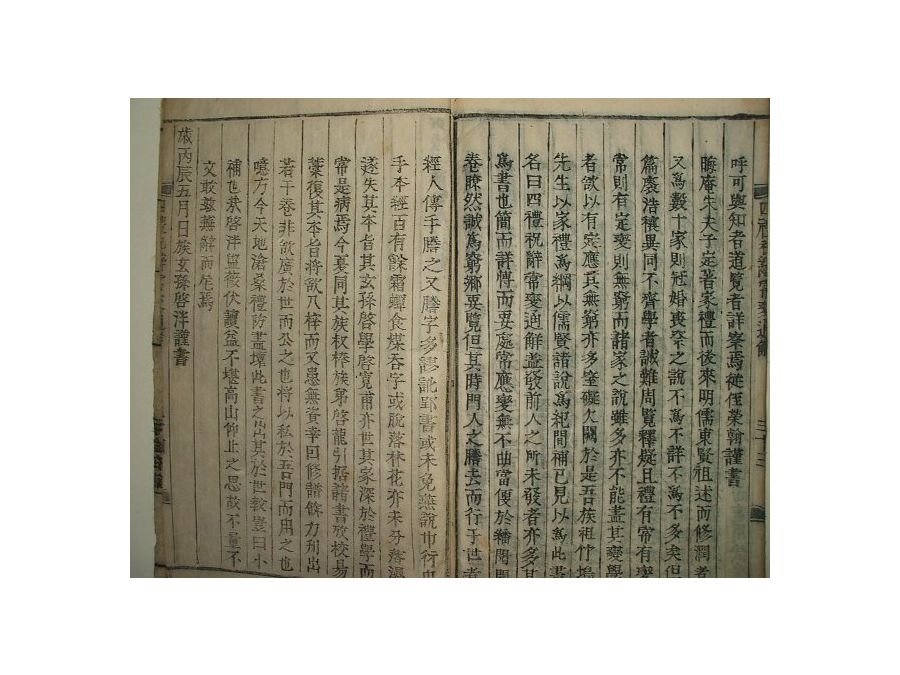 呼可與知者道覽者詳察焉從侄榮翰謹書
晦庵朱夫子定著家禮而後來明儒東賢祖述而修潤者
又爲數十家則冠婚喪祭之說不爲不詳不爲不多矣但
篇袠浩穰異同不齊學者誠難周覽釋疑且禮有常有變
常則有定變則無窮而諸家之說雖多亦不能盡其變學
者欲以有定應其無窮亦多窒礙欠闕於是吾族祖竹塢
先生以家禮爲綱以儒賢諸說爲紀間補已見以爲此書
名曰四禮祝辭常變通解盖發前人之所未發者亦多其
爲書也簡而詳博而要處常應變無不曲當便於繙閱
卷瞭然誠爲窮鄕要覽但其時門人之謄去而行于世者
經人傳手謄之又謄字多謬訛卽書或未免無說巾行
手本經百有餘霜蟬食煤呑字或脫落林花亦未
遂失其本旨其玄孫啓學啓寬甫亦世其家深於禮學而
常是病焉今夏同其族權桉族弟啓龍引据諸書攷校易
藁復其本旨將欲入梓而又患無資幸因修譜餘力刋出
若干卷非欲廣於世而公之也將以私於吾門而用之也
噫方今天地滄桑禮防盡壞此書之出其於世敎豈曰小
補也哉啓泮留薇伏讀益不堪高山仰止之思故不量不
文敢玆蕪辭而尾焉
歲丙辰五月日族玄孫啓泮謹書